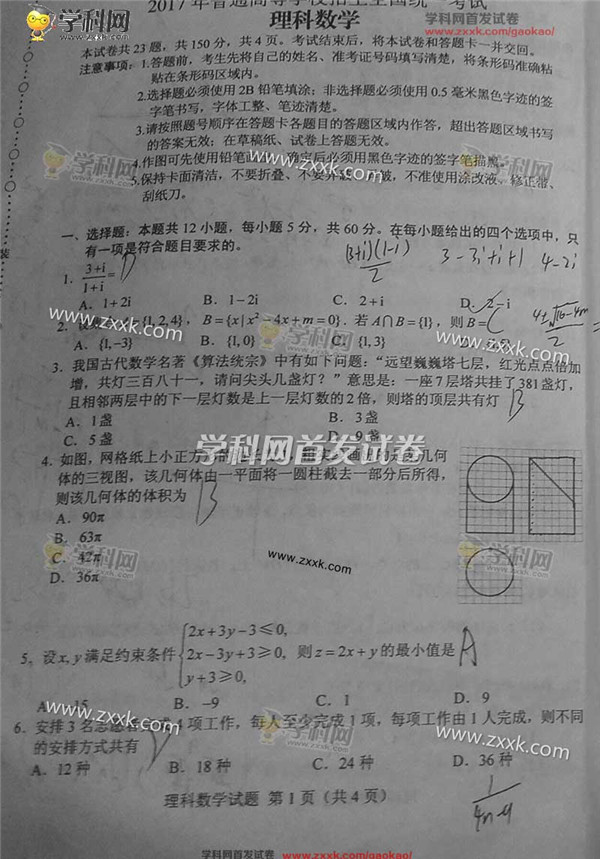 学科网首发试卷
www.zxxk.com/gaokao/
2017年普通高等学校招生全国统一考试
理科数学
本试卷共 23 题，共 150 分，共 4 页。考试结束后，将本试卷和答题卡一并交回。
注意事项：1.答题前，考生先将自己的姓名、准考证号码填写清楚，将条形码准确粘
贴在条形码区域内。
2.选择题必须使用 2B 铅笔填涂；非选择题必须使用 0.5 毫米黑色字迹的签
字笔书写，字体工整、笔迹清楚。
3.请按照题号顺序在答题卡各题目的答题区域内作答，超出答题区域书写
的答案无效；在草稿纸、试卷上答题无效。
4.作图可先使用铅笔画 确定后必须用黑色字迹的签字笔描
5.保持卡面清洁，不要折叠、不要弄 不准使用涂改液、修正带、
刮纸刀。
学科网
www.zxxk.com
一、选择题：本题共 12 小题，每小题 5 分，共 60 分。在每小题给出的四个选项中，只
有一项是符合题目要求的。
(3+i)(1-i)/2 3-3i+i+1 4-2i
1. (3+i)/(1+i)= D
A. 1+2i B. 1-2i C. 2+i D. 2-i
2. {1,2,4}，B={x|x²-4x+m=0}. 若 A∩B={1}，则 B= C
A. {1,-3} B. {1,0} C. {1,3}
3. 我国古代数学名著《算法统宗》中有如下问题：“远望巍巍塔七层，红光点点倍加
增，共灯三百八十一，请问尖头几盏灯？”意思是：一座 7 层塔共挂了 381 盏灯，
且相邻两层中的下一层灯数是上一层灯数的 2 倍，则塔的顶层共有灯 B
A. 1 盏 B. 3 盏
C. 5 盏 D. 9 盏
学科网首发试卷
4. 如图，网格纸上小正方
体的三视图，该几何体由一平面将一圆柱截去一部分后所得，
则该几何体的体积为 B
A. 90π
B. 63π
C. 42π
D. 36π
学科网
www.zxxk.com
5. 设 x, y 满足约束条件 {2x+3y-3≤0, 2x-3y+3≥0, y+3≥0, 则 z=2x+y 的最小值是 A
A. -15 B. -9 C. 1 D. 9
6. 安排 3 名志愿者 4 项工作，每人至少完成 1 项，每项工作由 1 人完成，则不同
的安排方式共有 D
A. 12 种 B. 18 种 C. 24 种 D. 36 种
理科数学试题 第 1 页（共 4 页）
学科网首发试卷 www.zxxk.com/gaokao/